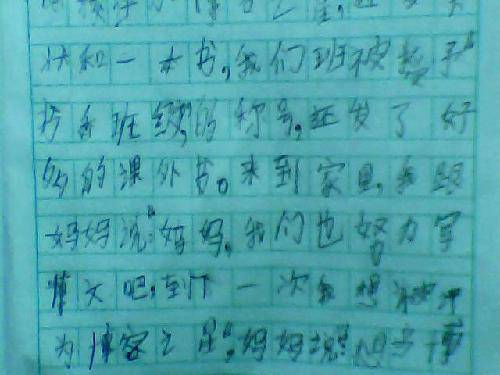 状和一本书,我们班被授予"
书香班级"的称号,还发了好
多的课外书。来到家里,我跟
妈妈说:"妈妈,我们也努力写
博文吧,到下一次我想被评
为博客之星"妈妈说:"